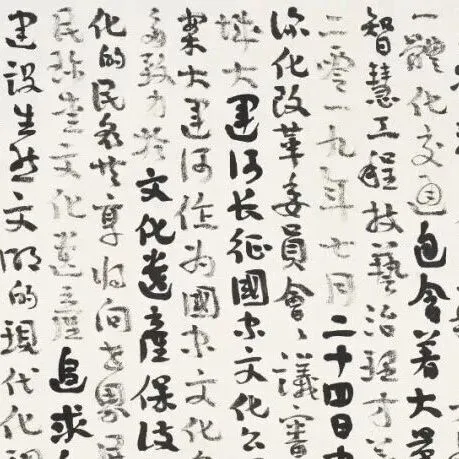 一體化交通包含著大量
智慧工程技藝治理方
二零一九年七月二十四日中
深化改革委員會會議審
城大運河长征國家文化公
案大運河作为國家文化
致力於文化遺產保
化的民衆共享向世界展
民珍愛文化遺產追求
建設生態文明的現代化